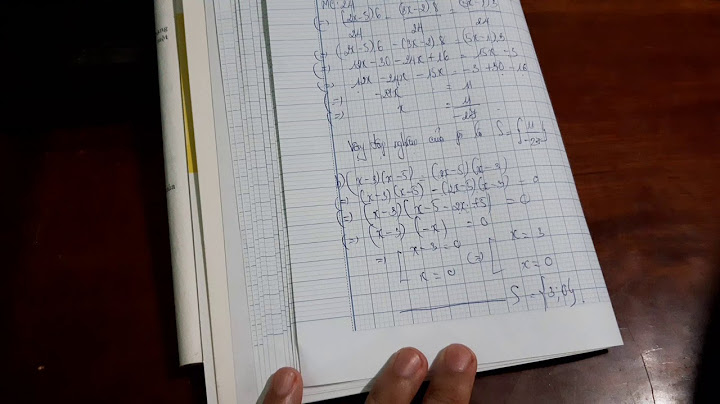 MC: 24
(=) (2x-5)6 (3x-2)8 (5x-1)3
24 24 24
(=) (2x-5)6 - (3x-2)8 = (5x-1)3
(=) 12x - 30 - 24x + 16 = 15x - 3
(=) 12x - 24x - 15x = -3 + 30 - 16
(=) -27x = 11
(=) x = 11/-27
Vậy tập nghiệm của pt là S = { 11/-27 }
b) (x-3)(x-5) = (2x-5)(x-3)
(=) (x-3)(x-5) - (2x-5)(x-3) = 0
(=) (x-3)(x-5-2x+5) = 0
(=) (x-3)(-x) = 0
(=) [ x-3 = 0 (=) [ x = 3
x = 0 x = 0
S = {3; 0}